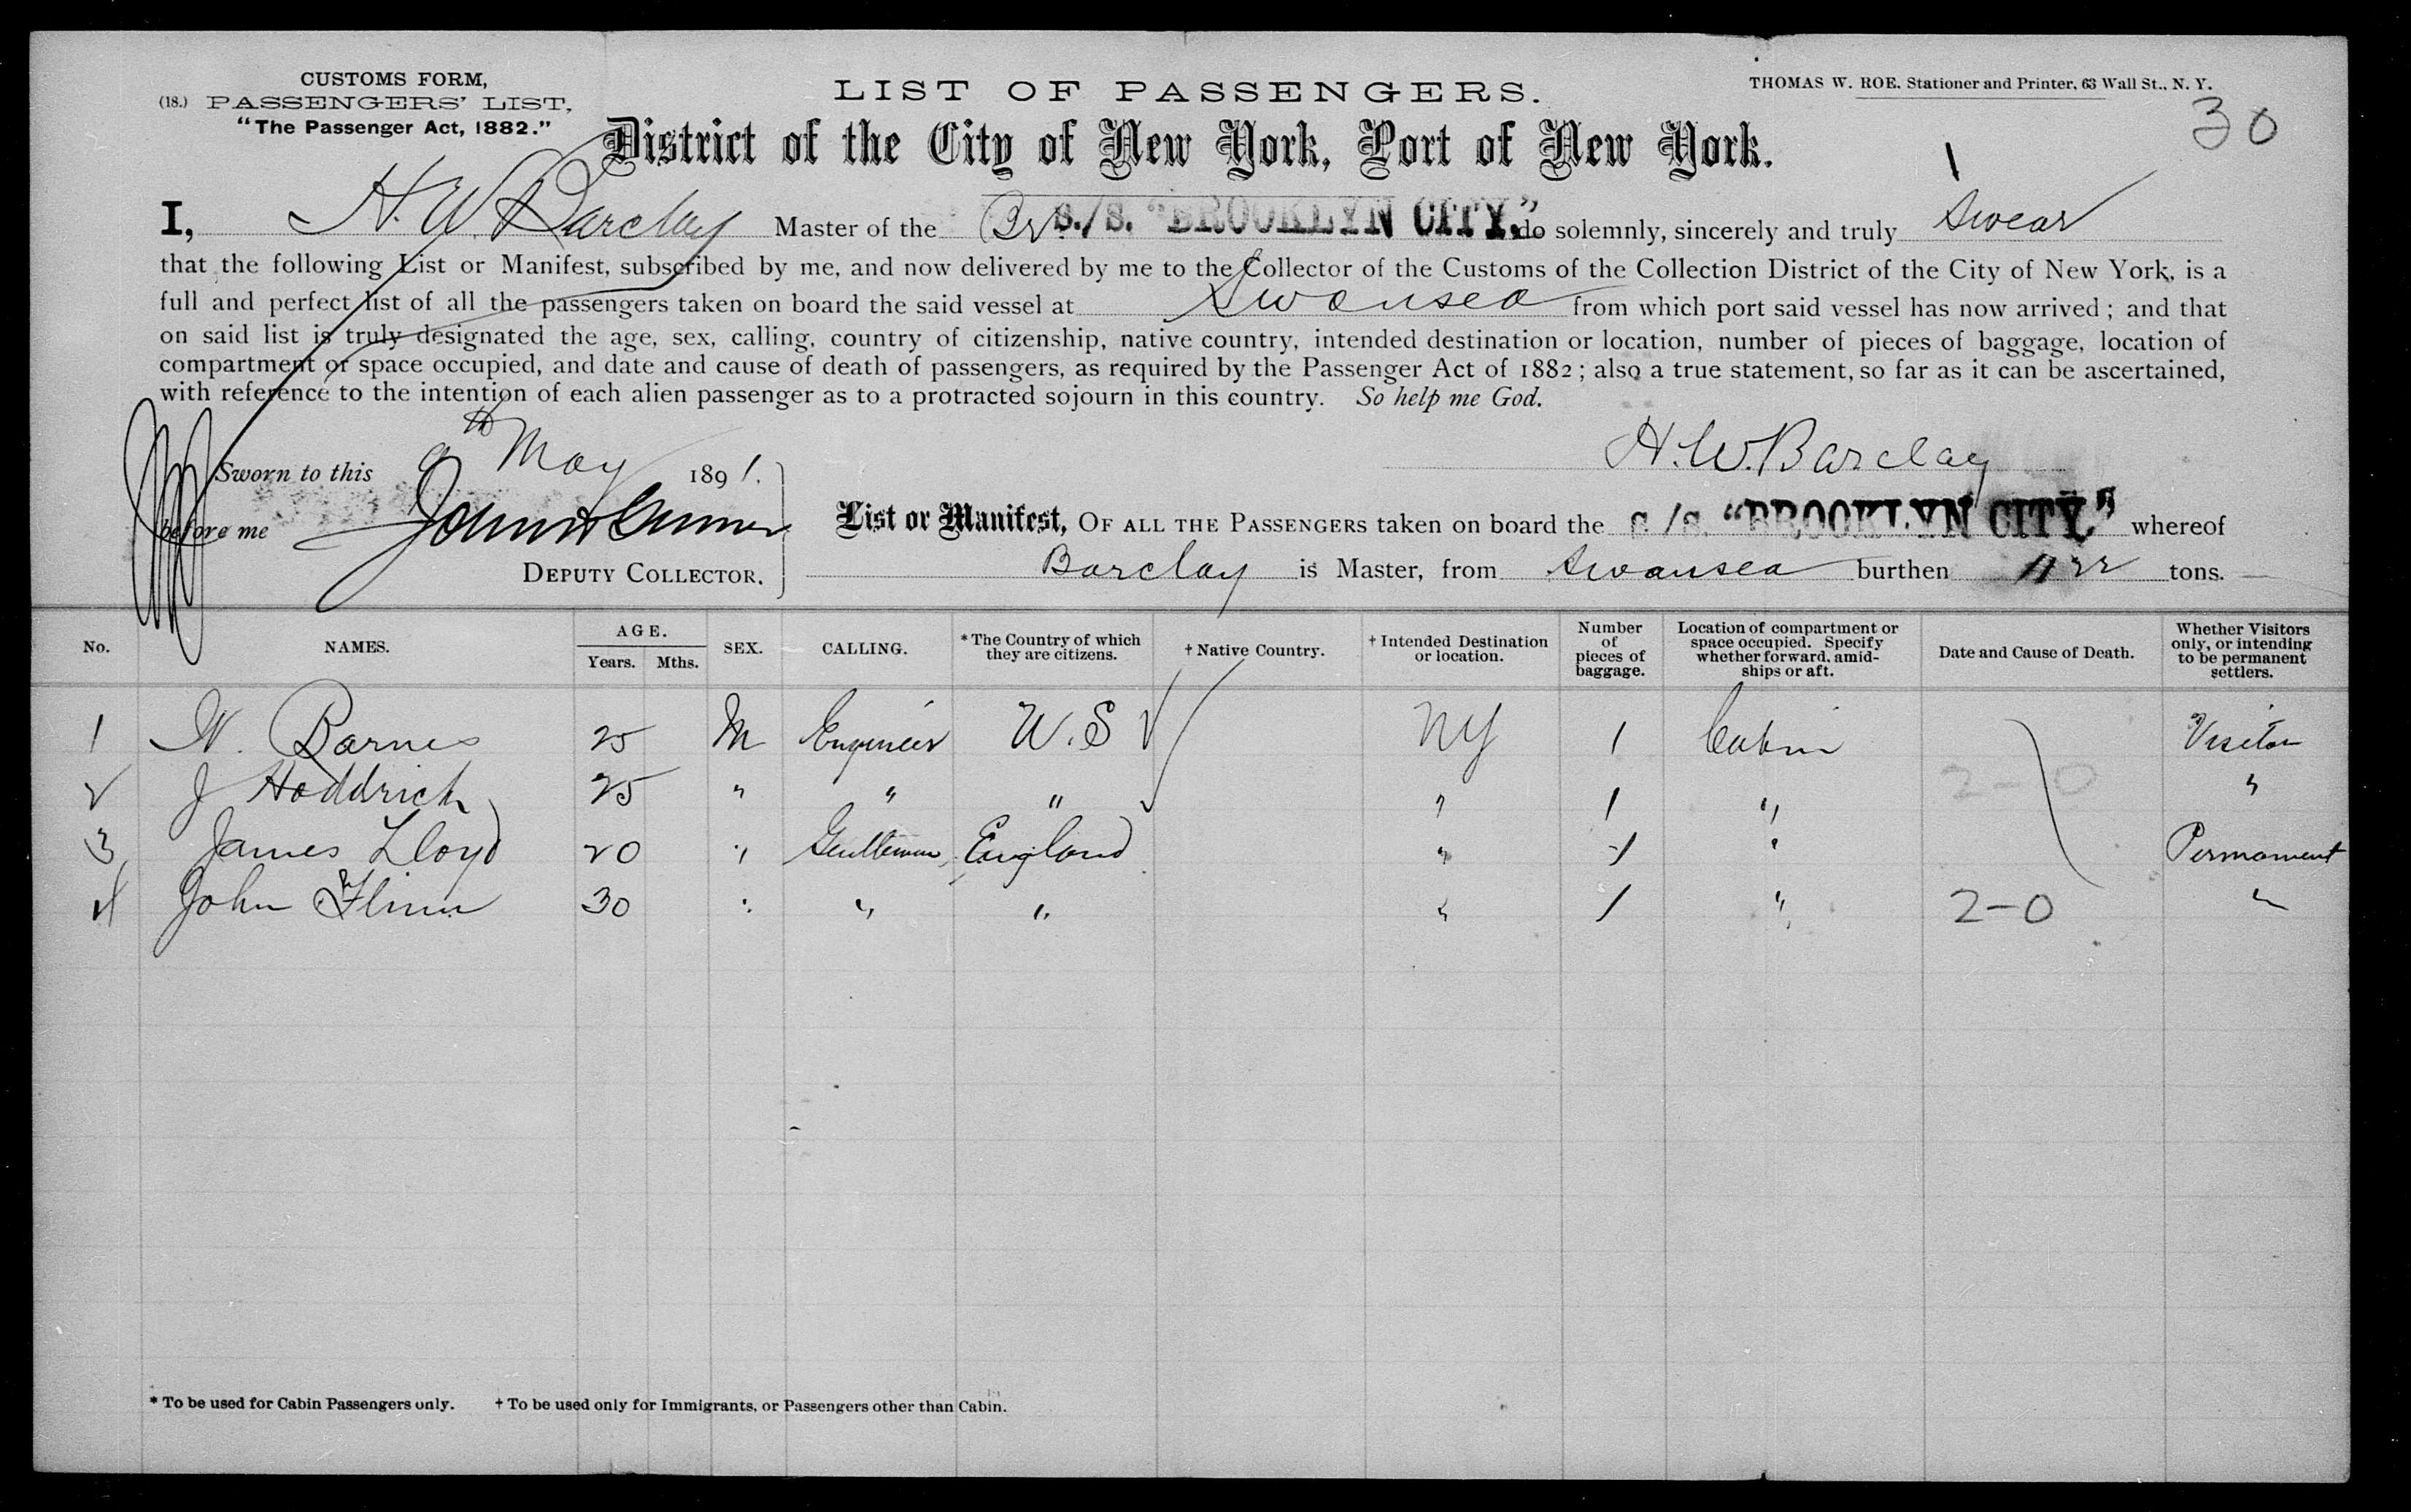 CUSTOMS FORM,
(18.) PASSENGERS' LIST,
"The Passenger Act, 1882."
LIST OF PASSENGERS.
THOMAS W. ROE, Stationer and Printer, 63 Wall St., N. Y.
30
District of the City of New York, Port of New York.
I, H. W. Barclay Master of the Br. S./S. "BROOKLYN CITY," do solemnly, sincerely and truly swear
that the following List or Manifest, subscribed by me, and now delivered by me to the Collector of the Customs of the Collection District of the City of New York, is a
full and perfect list of all the passengers taken on board the said vessel at Swansea from which port said vessel has now arrived; and that
on said list is truly designated the age, sex, calling, country of citizenship, native country, intended destination or location, number of pieces of baggage, location of
compartment or space occupied, and date and cause of death of passengers, as required by the Passenger Act of 1882; also a true statement, so far as it can be ascertained,
with reference to the intention of each alien passenger as to a protracted sojourn in this country. So help me God.
Sworn to this 9th May 1891.
H. W. Barclay
before me John
DEPUTY COLLECTOR.
List or Manifest, OF ALL THE PASSENGERS taken on board the S/S. "BROOKLYN CITY," whereof
Barclay is Master, from Swansea burthen tons.
No. NAMES. AGE. Years. Mths. SEX. CALLING. *The Country of which they are citizens. †Native Country. †Intended Destination or location. Number of pieces of baggage. Location of compartment or space occupied. Specify whether forward, amidships or aft. Date and Cause of Death. Whether Visitors only, or intending to be permanent settlers.
1 W. Barnes 25 M Engineer U.S NY 1 Cabin Visitor
2 J Hoddrich 25 " " " " 1 " 2-0 "
3 James Lloyd 20 " Gentleman England " 1 " Permanent
4 John Flinn 30 " " " " 1 " 2-0 "
* To be used for Cabin Passengers only. † To be used only for Immigrants, or Passengers other than Cabin.